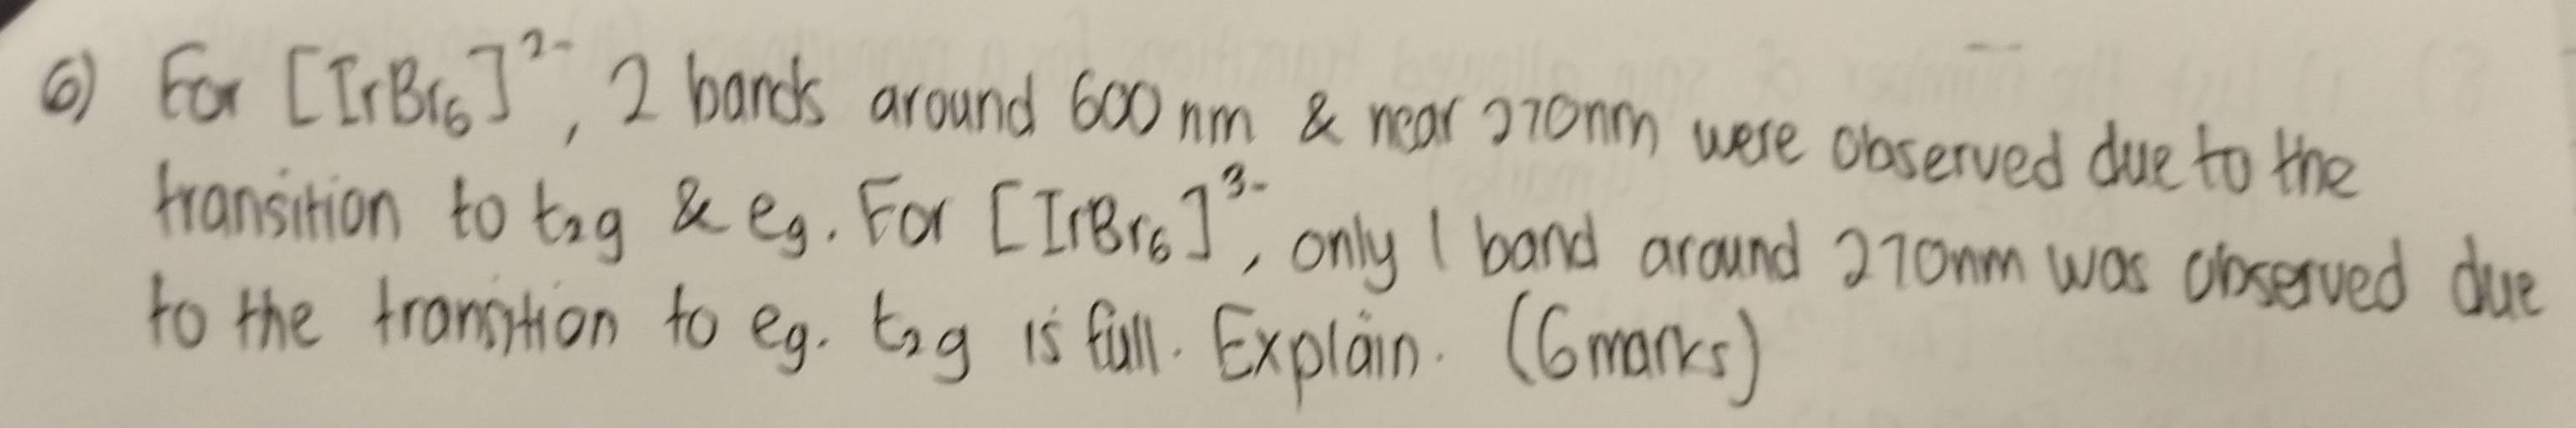 6) For [IrBr₆]²⁻, 2 bands around 600 nm & near 270nm were observed due to the
transition to t₂g & eg. For [IrBr₆]³⁻, only 1 band around 270nm was observed due
to the transition to eg. t₂g is full. Explain. (6 marks)